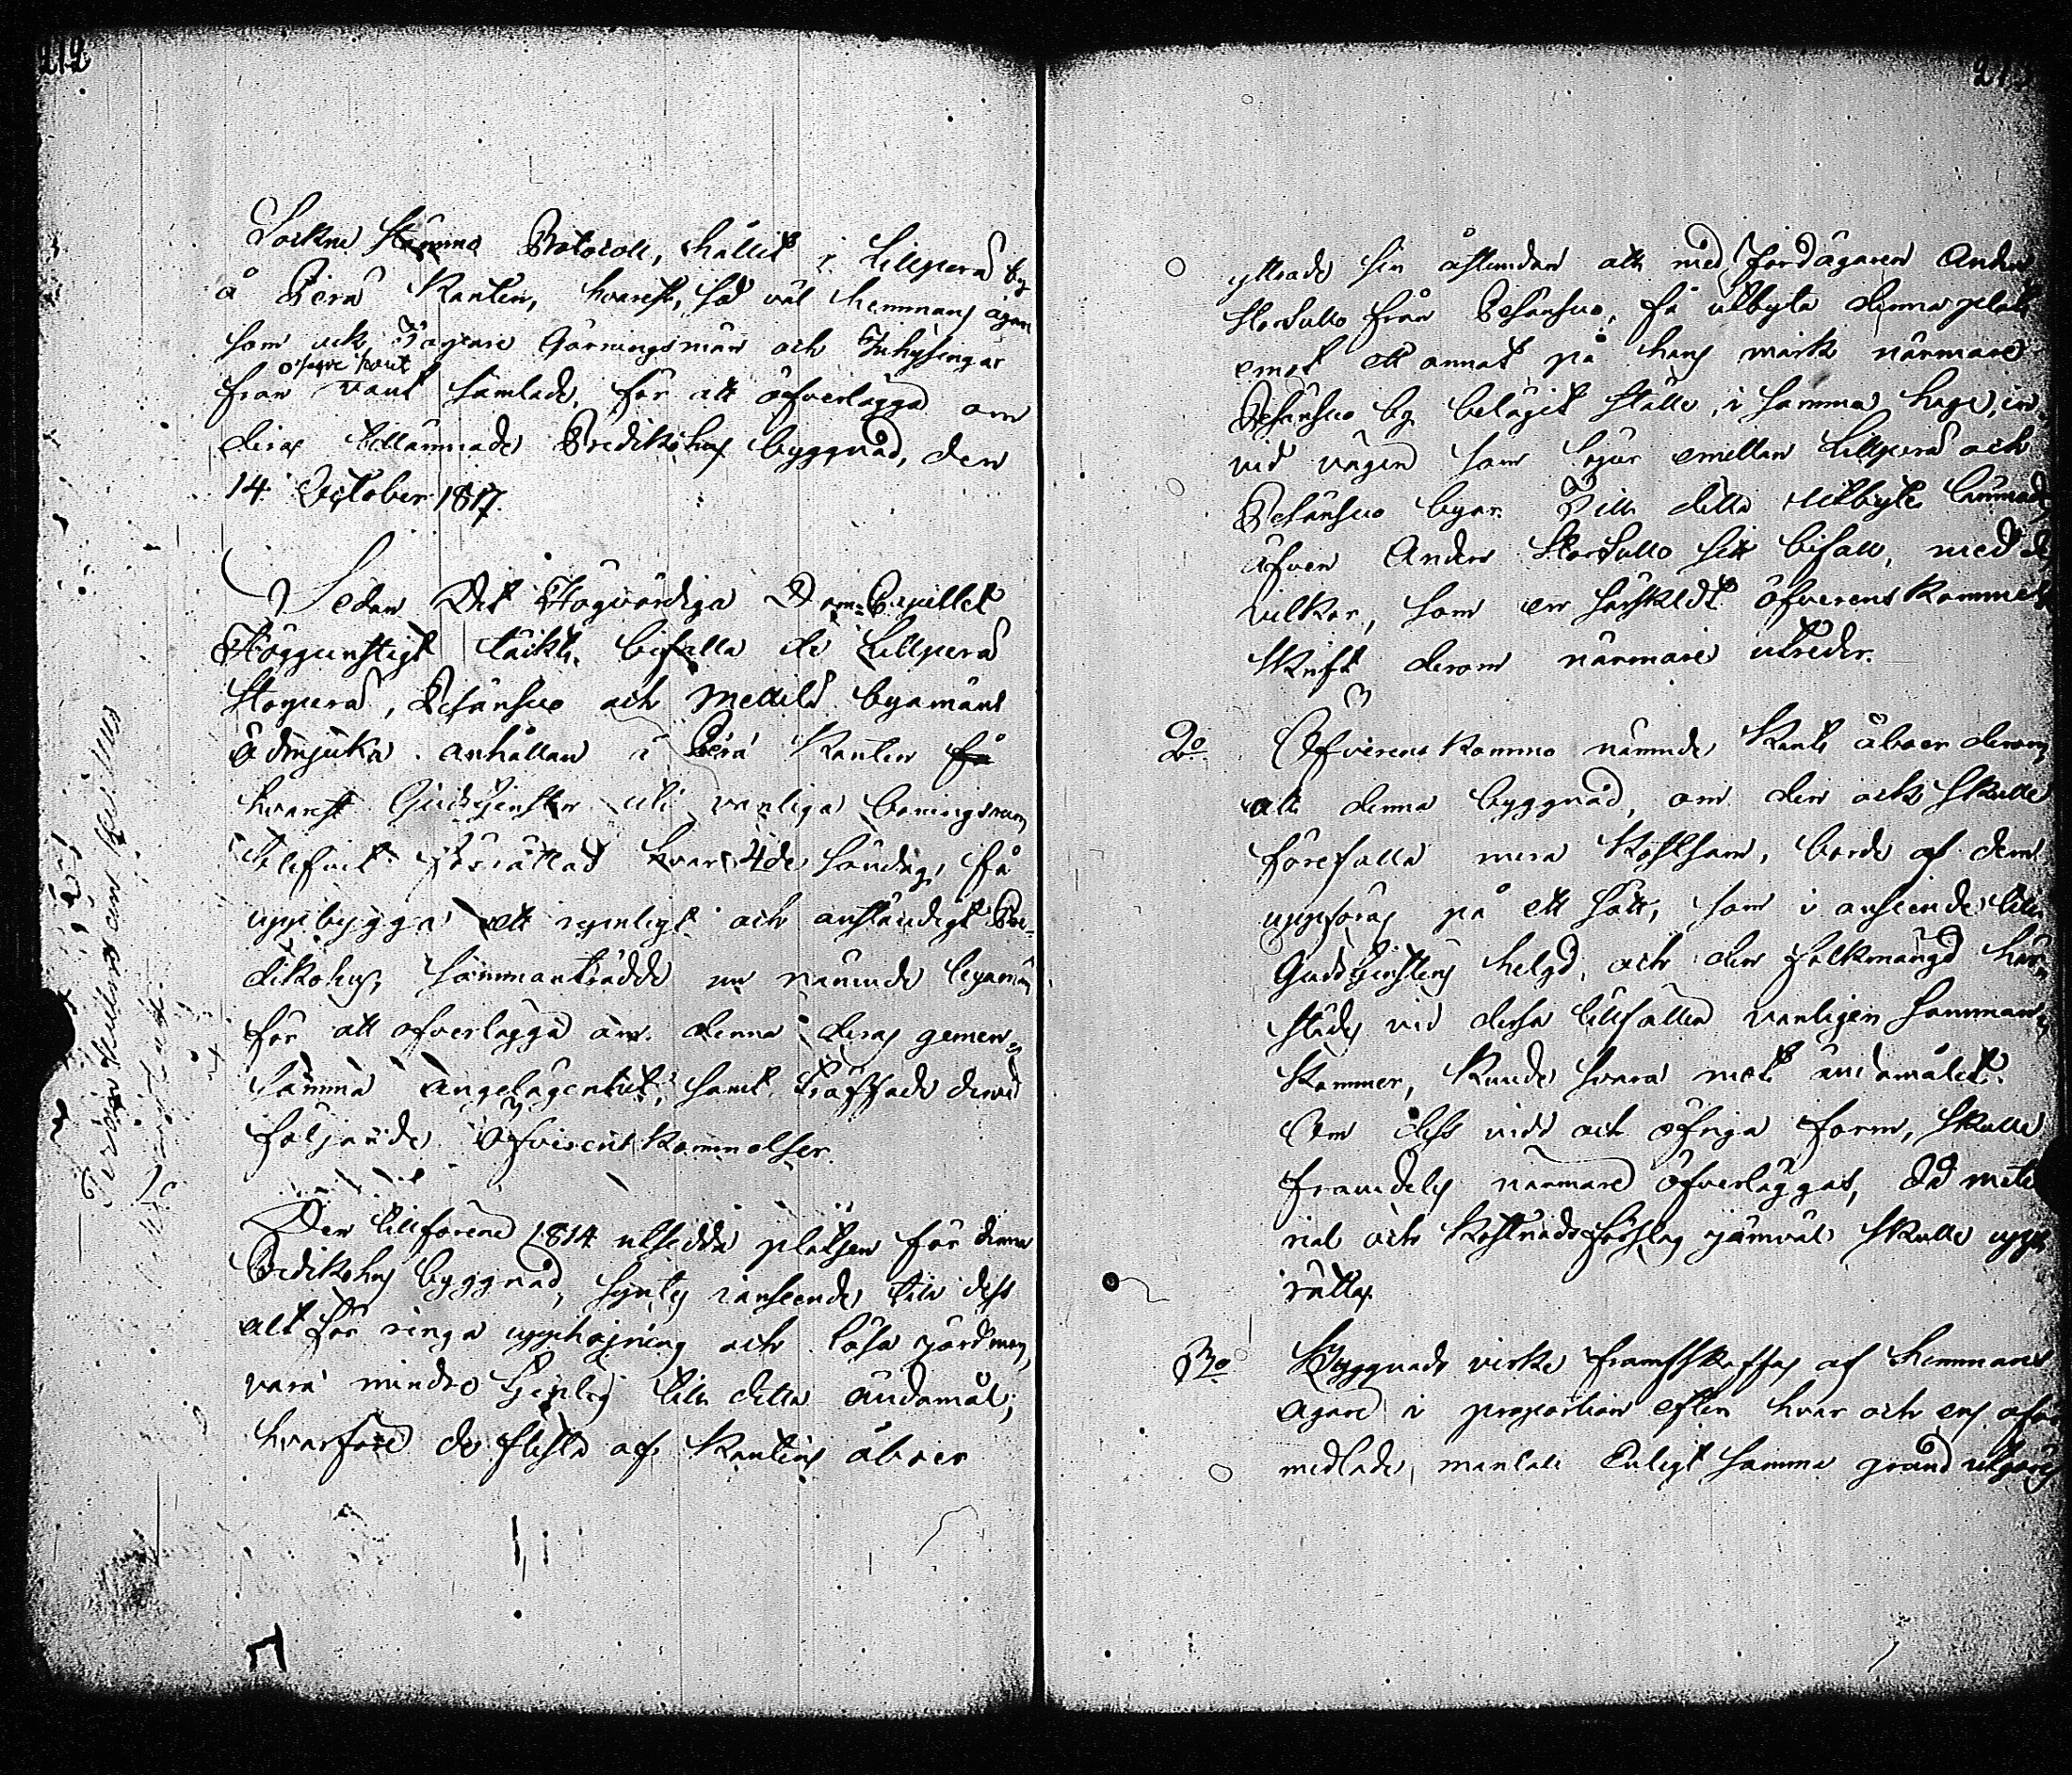 212
Sockne Stämmo Protocoll, hållit i Lillperå by
å Perå Kanten, hvarest, så väl hemmans ägare
som ock Torpare Gärningsmän och Inhysingar
ofvan
från samlade, för att öfverlägga om
deras tillämnade Predikohus byggnad, den
14 October 1817.
Sedan Det Högvördiga Dom-Capitlet
Höggunstigt täckts bifalla de Lillperå
Storperå, Pesänsuo och Mettilä byamäns
ödmjuka anhållan i Perå Kanten få
hvarest Gudstjenster uti vanliga boningsrum
blifvit förrättad hvar 4de söndag, få
uppbygga ett egenligt och anständigt Pre-
dikohus, sammanträdde nu nämnde byamän
för att öfverlägga om denna deras gemen-
samma angelägenhet, samt träffade dervid
följande Öfverenskommelser.
Den tillförene 1814 utsedda platsen för denna
Predikohus byggnad, syntes i anseende till dess
alt för ringa upphöjning och lösa jordmon,
vara mindre tjenlig till detta ändamål;
hvarföre de flesta af Kantens åboer
213
yttrade sin åstundan att med Jordägaren Anders
från Pesänsuo, få utbyta denna plats
emot ett annat på hans mark närmare
Pesänsuo by beläget ställe, i samma hage, in-
vid vägen som löper emellan Lillperå och
Pesänsuo byar. Till detta utbyte lemnade
äfven Anders sitt bifall, med de
vilkor, som en särskildt öfverenskommelse
skrift derom närmare utreder.
2o. Öfverenskommo nämnde Kants åboer derom,
att denna byggnad, om den ock skulle
förefalla mera kostsam, borde af dem
uppföras på ett sätt, som i anseende till
Gudstjenstens helgd, och den folkmängd här-
städes vid dessa tillfällen vanligen samman-
kommer, kunde svara mot ändamålet.
Om dess vidd och öfriga form, skulle
framdeles närmare öfverläggas, då mate-
rial och kostnadsförslag jämväl skulle upp-
rättas.
3o. Byggnads virke framskaffas af hemmans
ägare i proportion efter hvar och ens
mantal. Enligt samma grund utgöres